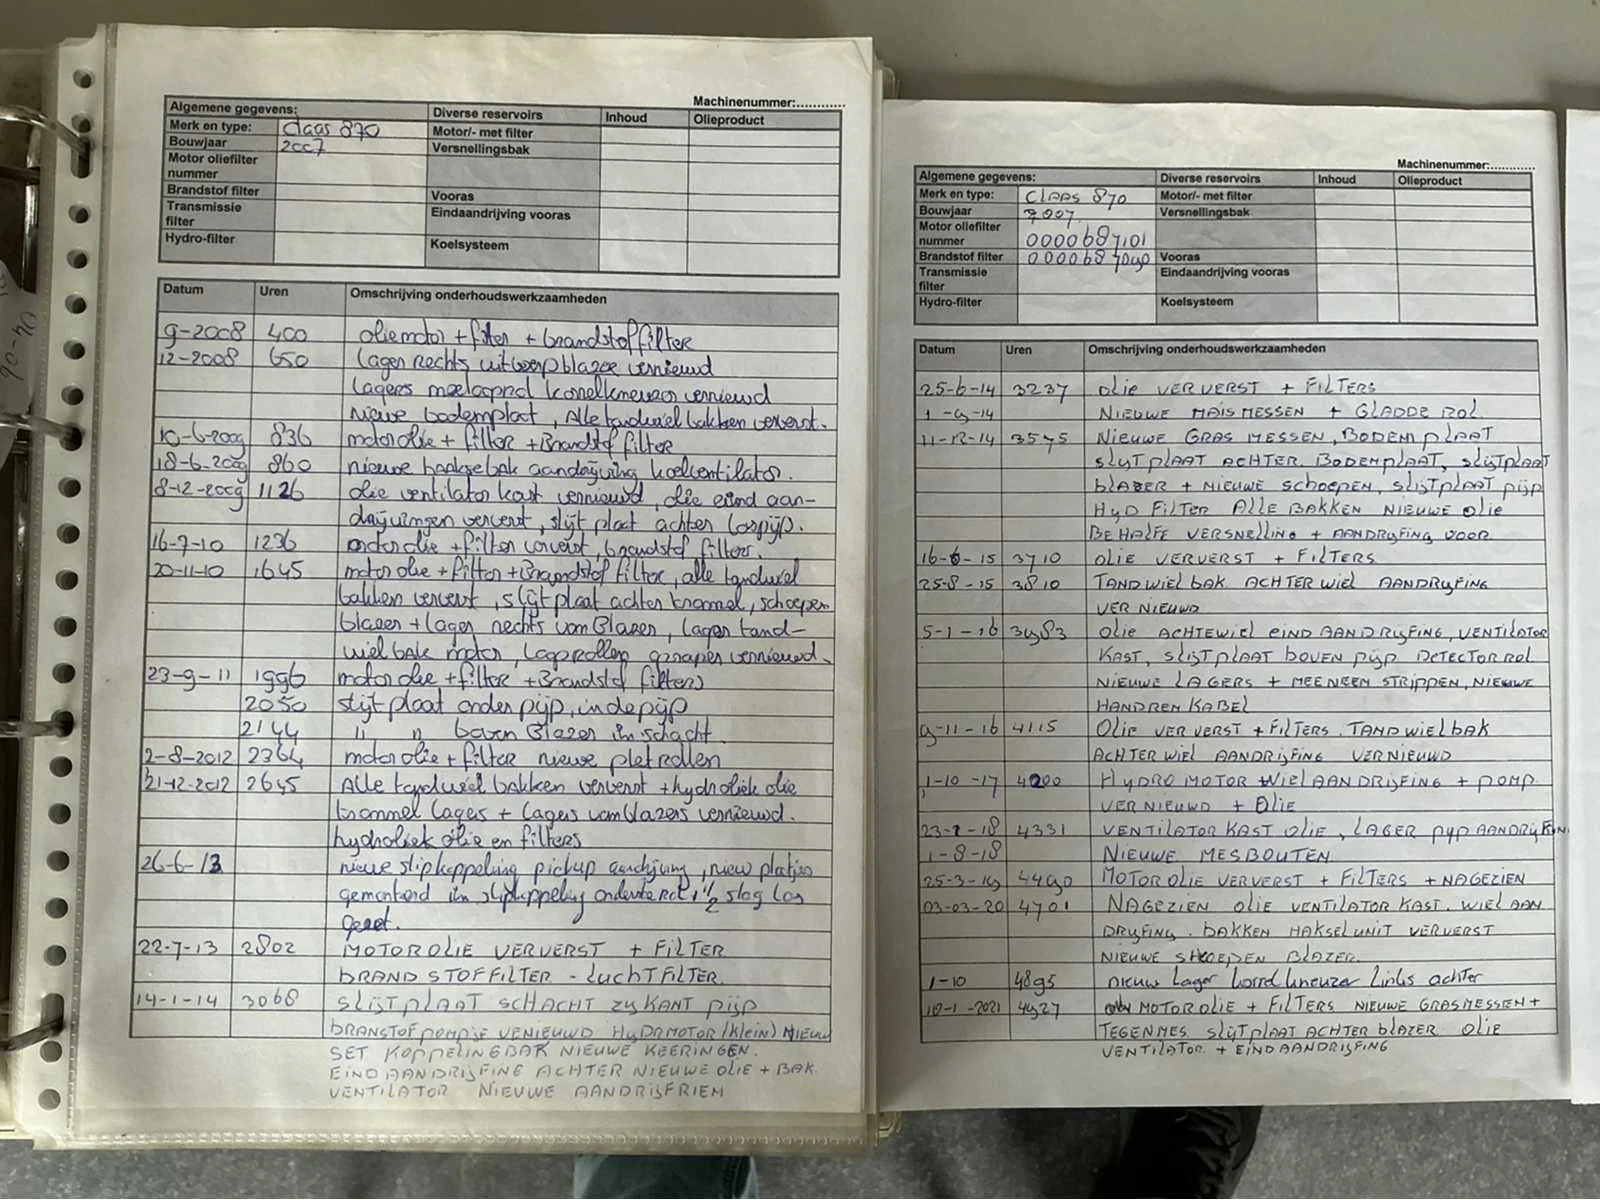 Machinenummer:............
Algemene gegevens: Diverse reservoirs Inhoud Olieproduct
Merk en type: Claas 870 Motor/- met filter
Bouwjaar 2007 Versnellingsbak
Motor oliefilter nummer
Brandstof filter Vooras
Transmissie filter Eindaandrijving vooras
Hydro-filter Koelsysteem
Datum Uren Omschrijving onderhoudswerkzaamheden
9-2008 400 oliemotor + filter + brandstoffilter
12-2008 650 lager rechts uitwerpblazer vernieuwd
lagers meelooprol korrelkneuzer vernieuwd
nieuwe bodemplaat, Alle tandwielbakken ververst.
10-6-2009 836 motorolie + filter + Brandstof filter
18-6-2009 860 nieuwe haaksebak aandrijving koelventilator.
8-12-2009 1126 olie ventilator kast vernieuwd, olie eind aan-
drijvingen ververst, slijt plaat achter lospijp.
16-7-10 1236 motorolie + filter ververst, brandstof filters.
20-11-10 1645 motorolie + filter + Brandstof filter, alle tandwiel
bakken ververst, slijtplaat achter trommel, schoepen
blazer + lager rechts van Blazer, lager tand-
wielbak motor, looprollen graper vernieuwd.
23-9-11 1996 motorolie + filter + Brandstof filters
2050 slijt plaat onder pijp, in de pijp
2144 " " boven Blazer in schacht.
2-8-2012 2364 motorolie + filter nieuwe pletrollen
21-12-2012 2645 Alle tandwiel bakken ververst + hydroliek olie
trommel lagers + lagers van blazers vernieuwd.
hydroliek olie en filters
26-6-13 nieuwe slipkoppeling pickup aandrijving, nieuw platjes
gemonteerd in slipkoppeling 1 1/2 slag los
gezet.
22-7-13 2802 MOTOROLIE VERVERST + FILTER
BRANDSTOFFILTER - LUCHTFILTER.
14-1-14 3068 SLIJTPLAAT SCHACHT ZYKANT PIJP
BRANSTOFPOMPJE VENIEUWD HYDRMOTOR (klein) NIEUW
SET KOPPELINGBAK NIEUWE KEERINGEN.
EINDAANDRIJFING ACHTER NIEUWE OLIE + BAK
VENTILATOR NIEUWE AANDRIJFRIEM
Machinenummer:............
Algemene gegevens: Diverse reservoirs Inhoud Olieproduct
Merk en type: CLAAS 870 Motor/- met filter
Bouwjaar 2007 Versnellingsbak
Motor oliefilter nummer 0000687101
Brandstof filter 0000687090 Vooras
Transmissie filter Eindaandrijving vooras
Hydro-filter Koelsysteem
Datum Uren Omschrijving onderhoudswerkzaamheden
25-6-14 3237 OLIE VERVERST + FILTERS
1-9-14 NIEUWE MAISMESSEN + GLADDE ROL
11-12-14 3575 NIEUWE GRAS MESSEN, BODEMPLAAT
SLIJTPLAAT ACHTER. BODEMPLAAT, SLIJTPLAAT
BLAZER + NIEUWE SCHOEPEN, SLIJTPLAAT PIJP
HYD FILTER ALLE BAKKEN NIEUWE OLIE
BEHALFE VERSNELLING + AANDRIJFING VOOR
16-6-15 3710 OLIE VERVERST + FILTERS
25-8-15 3810 TANDWIEL BAK ACHTER WIEL AANDRIJFING
VERNIEUWD
5-1-16 3983 OLIE ACHTEWIEL EINDAANDRIJFING, VENTILATOR
KAST, SLIJTPLAAT BOVEN PIJP DETECTORROL
NIEUWE LAGERS + MEENEEM STRIPPEN, NIEUWE
HANDREN KABEL
9-11-16 4115 OLIE VERVERST + FILTERS. TANDWIELBAK
ACHTER WIEL AANDRIJFING VERNIEUWD
1-10-17 4200 HYDRO MOTOR WIELAANDRIJFING + POMP
VERNIEUWD + OLIE
23-2-18 4331 VENTILATOR KAST OLIE, LAGER PYP AANDRIJFING
1-8-18 NIEUWE MESBOUTEN
25-3-19 4490 MOTOROLIE VERVERST + FILTERS + NAGEZIEN
03-03-20 4701 NAGEZIEN OLIE VENTILATOR KAST. WIEL AAN
DRYFING. BAKKEN HAKSELUNIT VERVERST
NIEUWE SHOEPEN BLAZER.
1-10 4895 nieuw lager korrelkneuzer links achter
10-1-2021 4927 MOTOROLIE + FILTERS NIEUWE GRASMESSEN +
TEGENMES SLIJTPLAAT ACHTER BLAZER OLIE
VENTILATOR + EINDAANDRIJFING